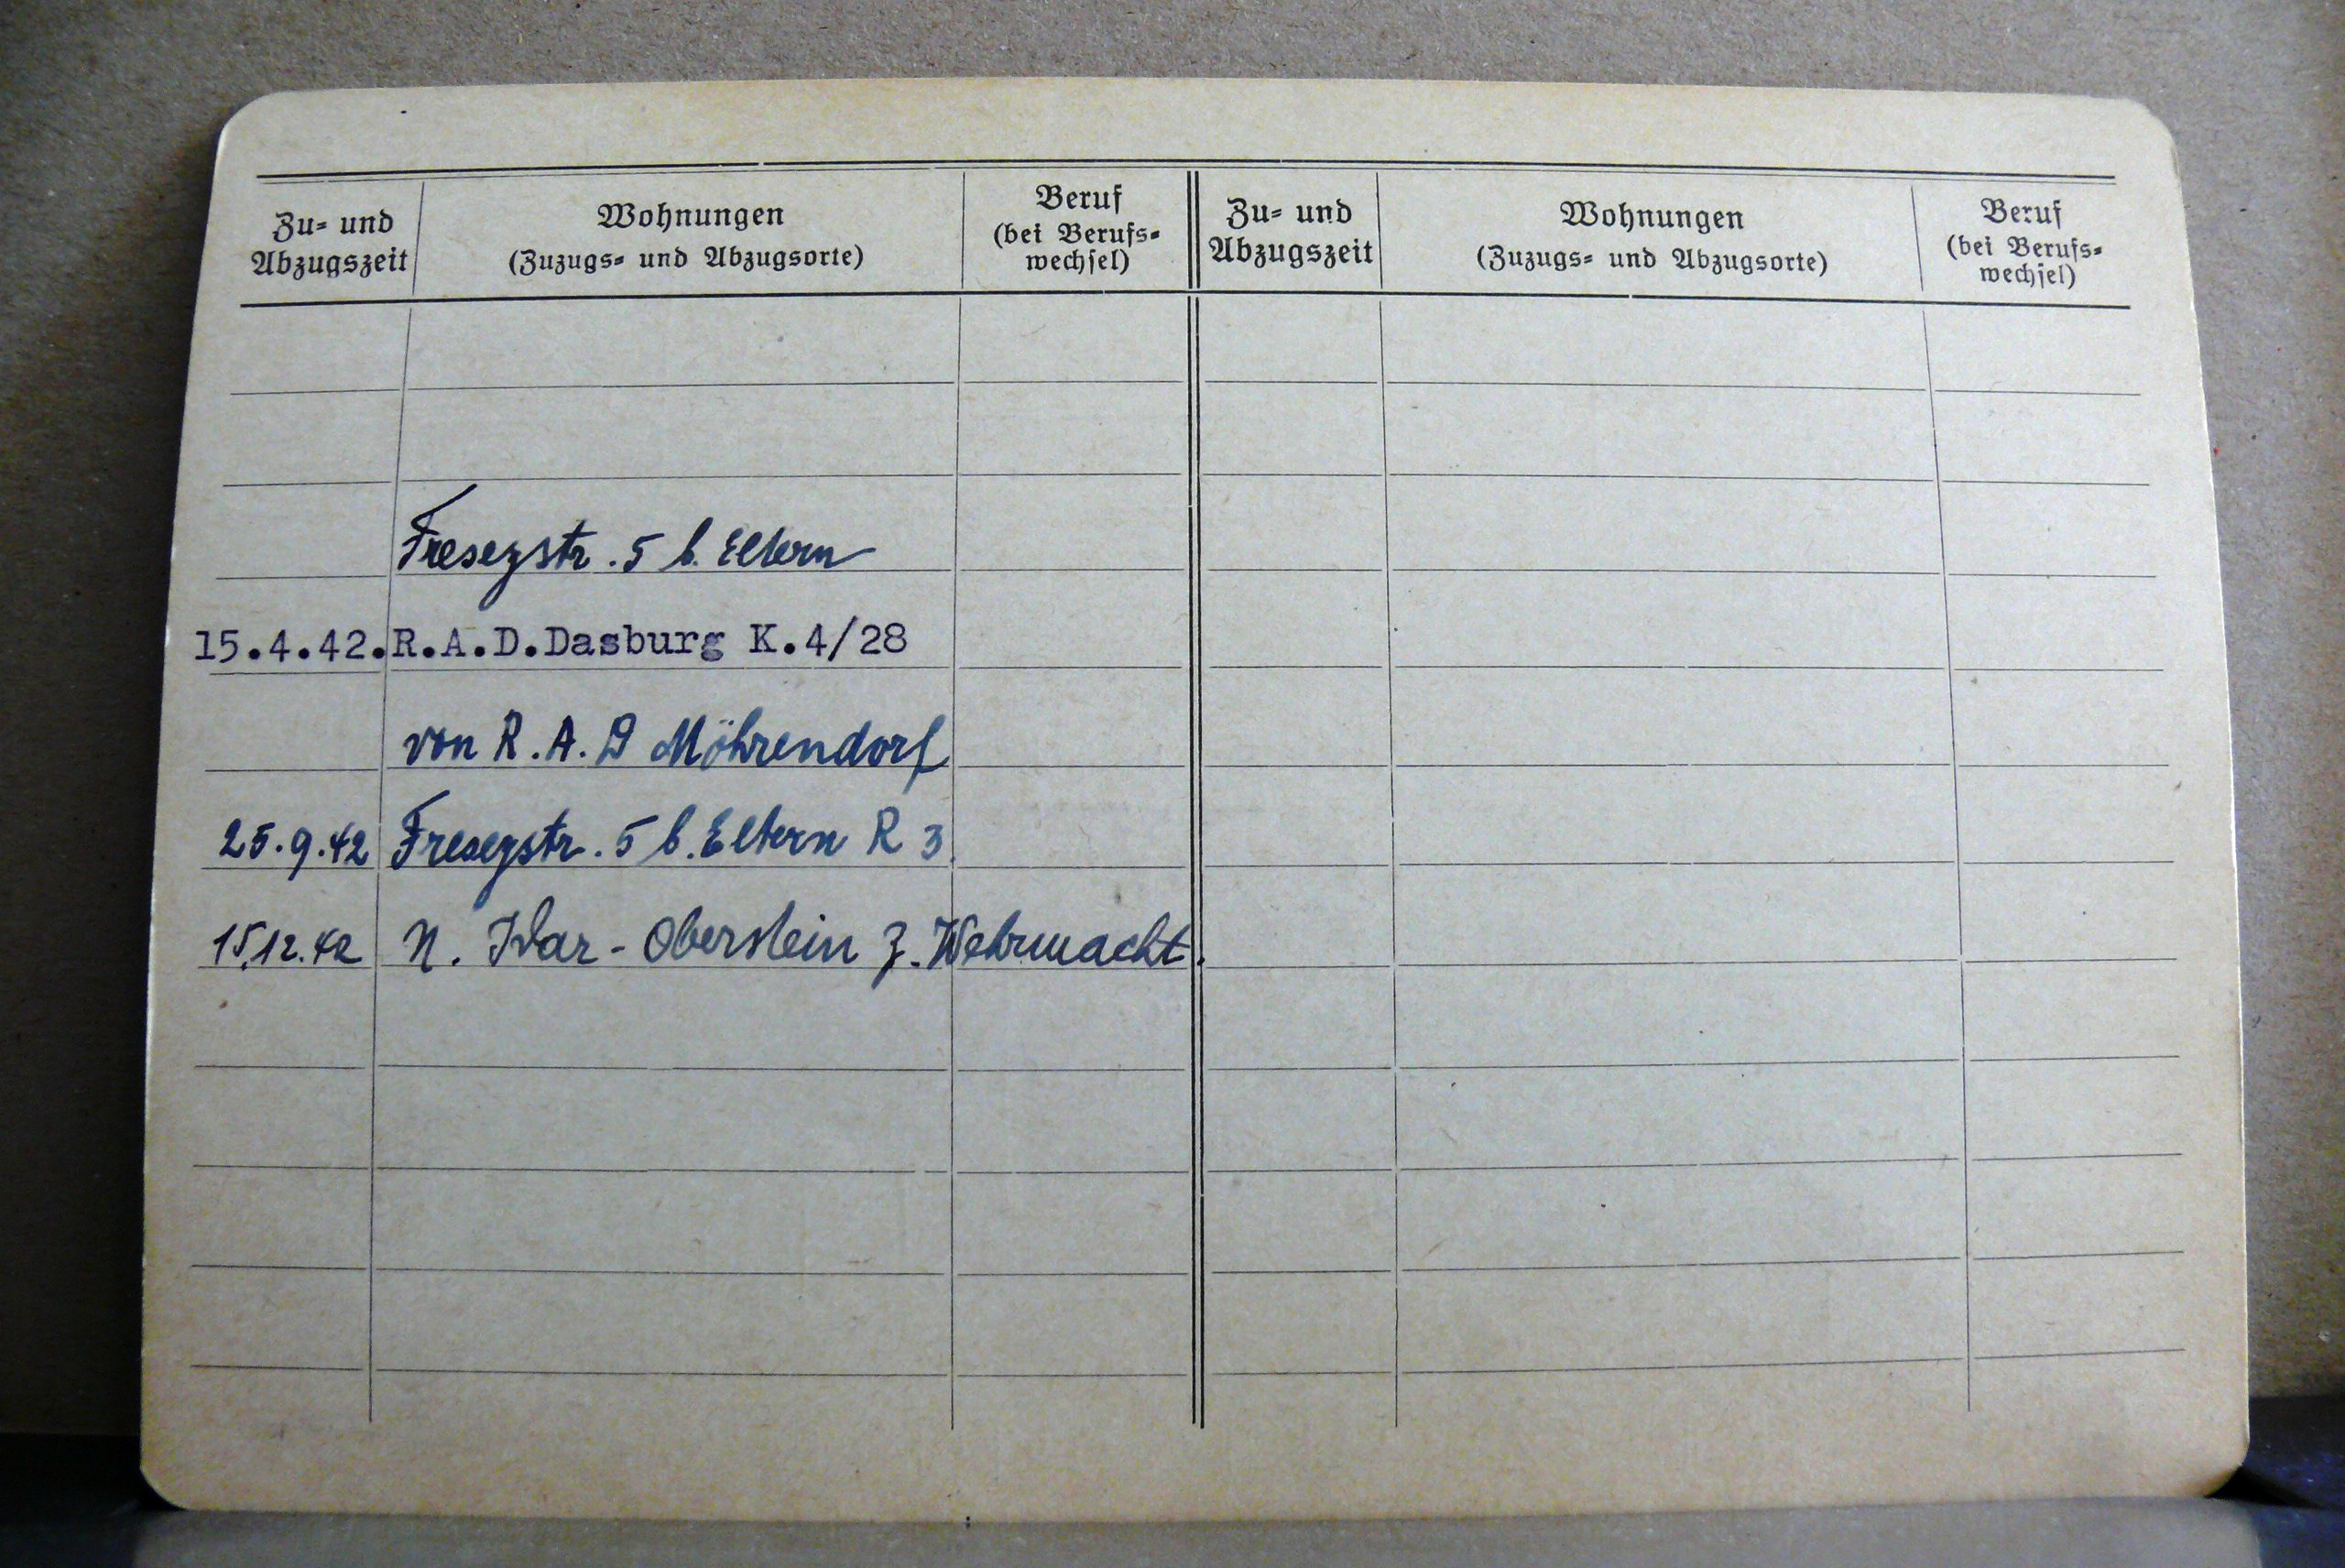 Zu- und Abzugszeit Wohnungen (Zuzugs- und Abzugsorte) Beruf (bei Berufs-wechsel) Zu- und Abzugszeit Wohnungen (Zuzugs- und Abzugsorte) Beruf (bei Berufs-wechsel)
Freseystr. 5 b. Eltern
15.4.42. R.A.D.Dasburg K.4/28
von R.A.D Möhrendorf
25.9.42 Freseystr. 5 b. Eltern R 3.
15.12.42 N. Idar-Oberstein z. Wehrmacht.